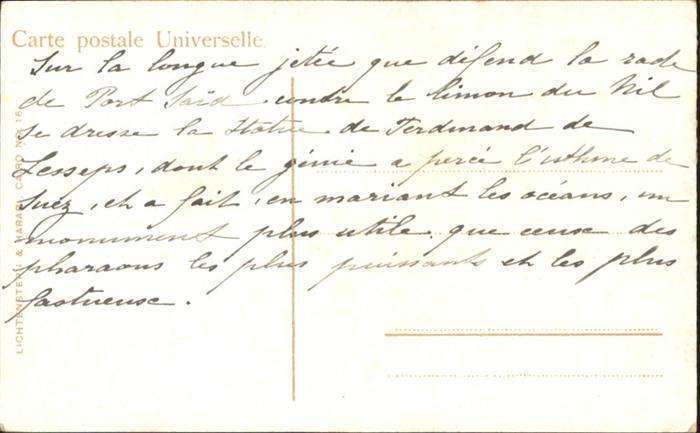 Carte postale Universelle.
Sur la longue jetée que défend la rade
de Port Saïd contre le limon du Nil
se dresse la statue de Ferdinand de
Lesseps, dont le génie a percé l'isthme de
Suez, et a fait, en mariant les océans, un
monument plus utile que ceux des
pharaons les plus puissants et les plus
fastueuse.
LICHTENSTERN & HARARI, CAIRO No.